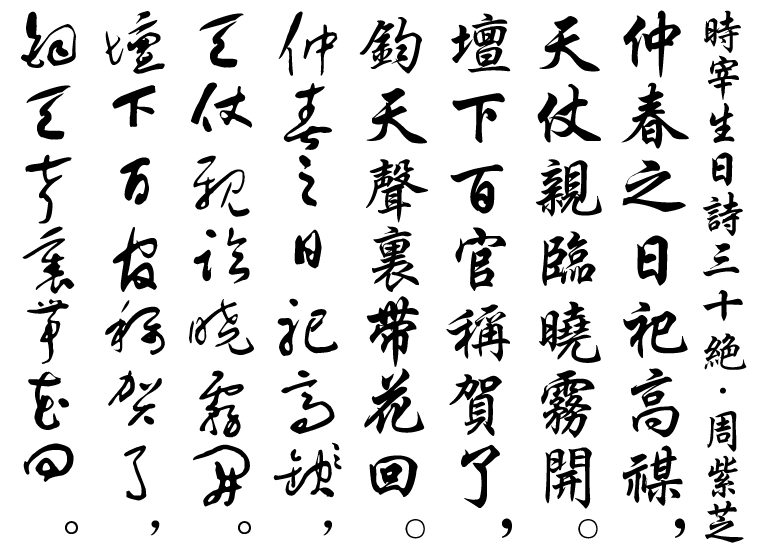 時宰生日詩三十絶·周紫芝
仲春之日祀高禖，
天仗親臨曉霧開。
壇下百官稱賀了，
鈞天聲裏帶花回。
仲春之日祀高，
天仗親臨曉霧開。
壇下百官稱賀了，
鈞天聲裏帶花回。